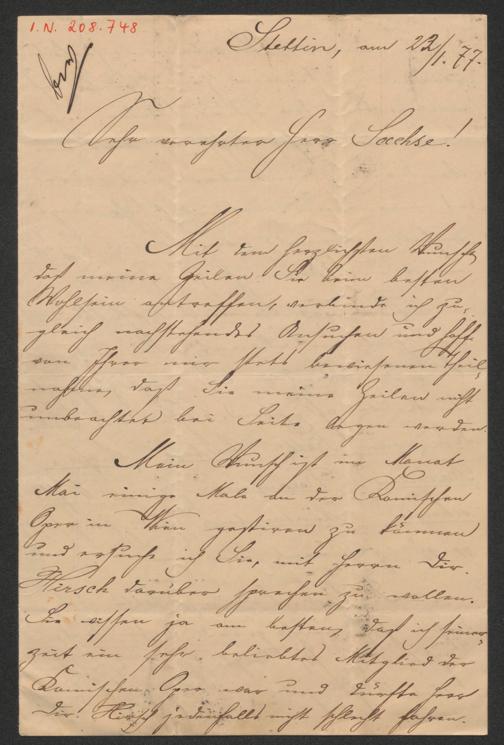 I.N. 208.748
Stettin, am 22/1. 77.
Sehr verehrter Herr Sachse!
Mit dem herzlichsten Wunsch
daß meine Zeilen Sie beim besten
Wohlsein antreffen, verbinde ich zu-
gleich nachstehendes Ansuchen und hoffe
von Ihrer mir stets bewiesenen Theil-
nahme, daß Sie meine Zeilen nicht
unbeachtet bei Seite legen werden.
Mein Wunsch ist im Monat
Mai einige Male an der Komischen
Oper in Wien gastiren zu können
und ersuche ich Sie, mit Herrn Dir.
Hirsch darüber sprechen zu wollen.
Sie wissen ja am besten, daß ich seiner-
zeit ein sehr beliebtes Mitglied der
Komischen Oper war und dürfte Herr
Dir. Hirsch jedenfalls nicht schlecht fahren.